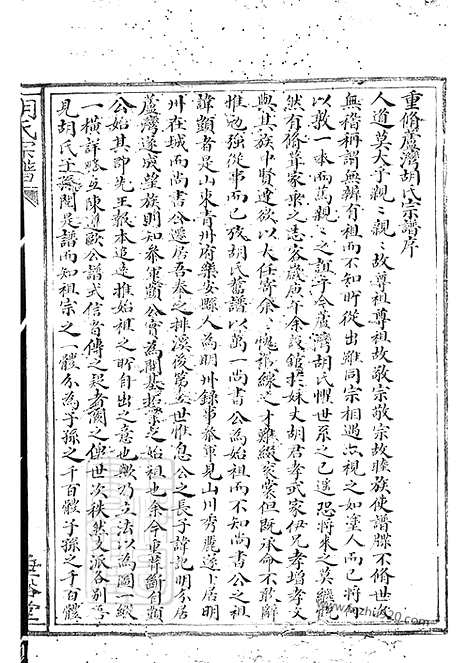 重脩蘆灣胡氏宗譜序
人道莫大于親〻親〻故尊祖尊祖故敬宗敬宗故睦族使譜牒不脩世次
無稽稱謂無辨有祖而不知所從出雖同宗相遇亦視之如塗人而已將
以敦一本而萬親〻之誼乎今蘆灣胡氏惧世系之已遥恐將來之莫繼
然有脩尊家乗之志客歲庚午余設舘於妹丈胡君孝武家伊兄孝增孝文
與其族中賢達欲以大任寄余〻愧樗線之才難綴家裳但既承命不敢辭
惟勉强從事而已殘胡氏舊譜以萬一尚書公為始祖而不知尚書公之祖
諱顗者是山東青州府樂安縣人為明州録事參軍見山川秀麗遂卜居明
州在城而尚書公遷居吾奉之排溪後第安世惚公之長子諱記明分居
蘆灣遂成望族則知參軍顗公實為開基拓業之始祖也余今重葺斷自顗
公始其即先王報本追遠推始祖之所自出之意也歟乃立法以為圖一縱
一横詳略互陳遵歐公譜式信者傳之疑者闕之俾世次秩然支派各别吾
見胡氏子孫閱是譜而知祖宗之一體分為子孫之千百骰子孫之千百體
胡氏宗譜